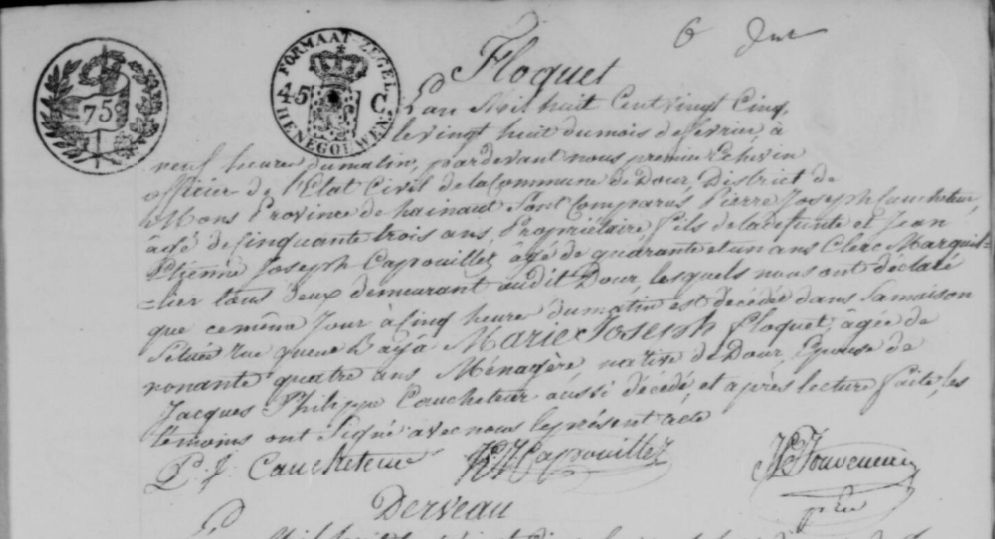 6
Floquet
75
FORMAAT ZEGEL
45 C.
HENEGOUWEN
L'an Mil huit Cent vingt Cinq,
le vingt huit du mois de fevrier à
neuf heures du matin, pardevant nous premier Echevin
officier de l'Etat Civil de la Commune de Dour, District de
Mons Province de hainaut sont Comparus Pierre Joseph Caucheteur,
âgé de Cinquante trois ans, Propriétaire, fils de la defunte et Jean
Etienne Joseph Capouillez âgé de quarante et un ans Clerc Marguil=
=lier tous deux demeurant audit Dour, lesquels nous ont déclaré
que ce même Jour à Cinq heure du matin est décédée dans Sa maison
Située rue Marie Joseph Floquet, âgée de
nonante quatre ans Ménagère native de Dour, Epouse de
Jacques Philippe Caucheteur aussi décédé, et après lecture faite, les
témoins ont Signé avec nous le présent acte
P. J. Caucheteur Capouillez
Derveau